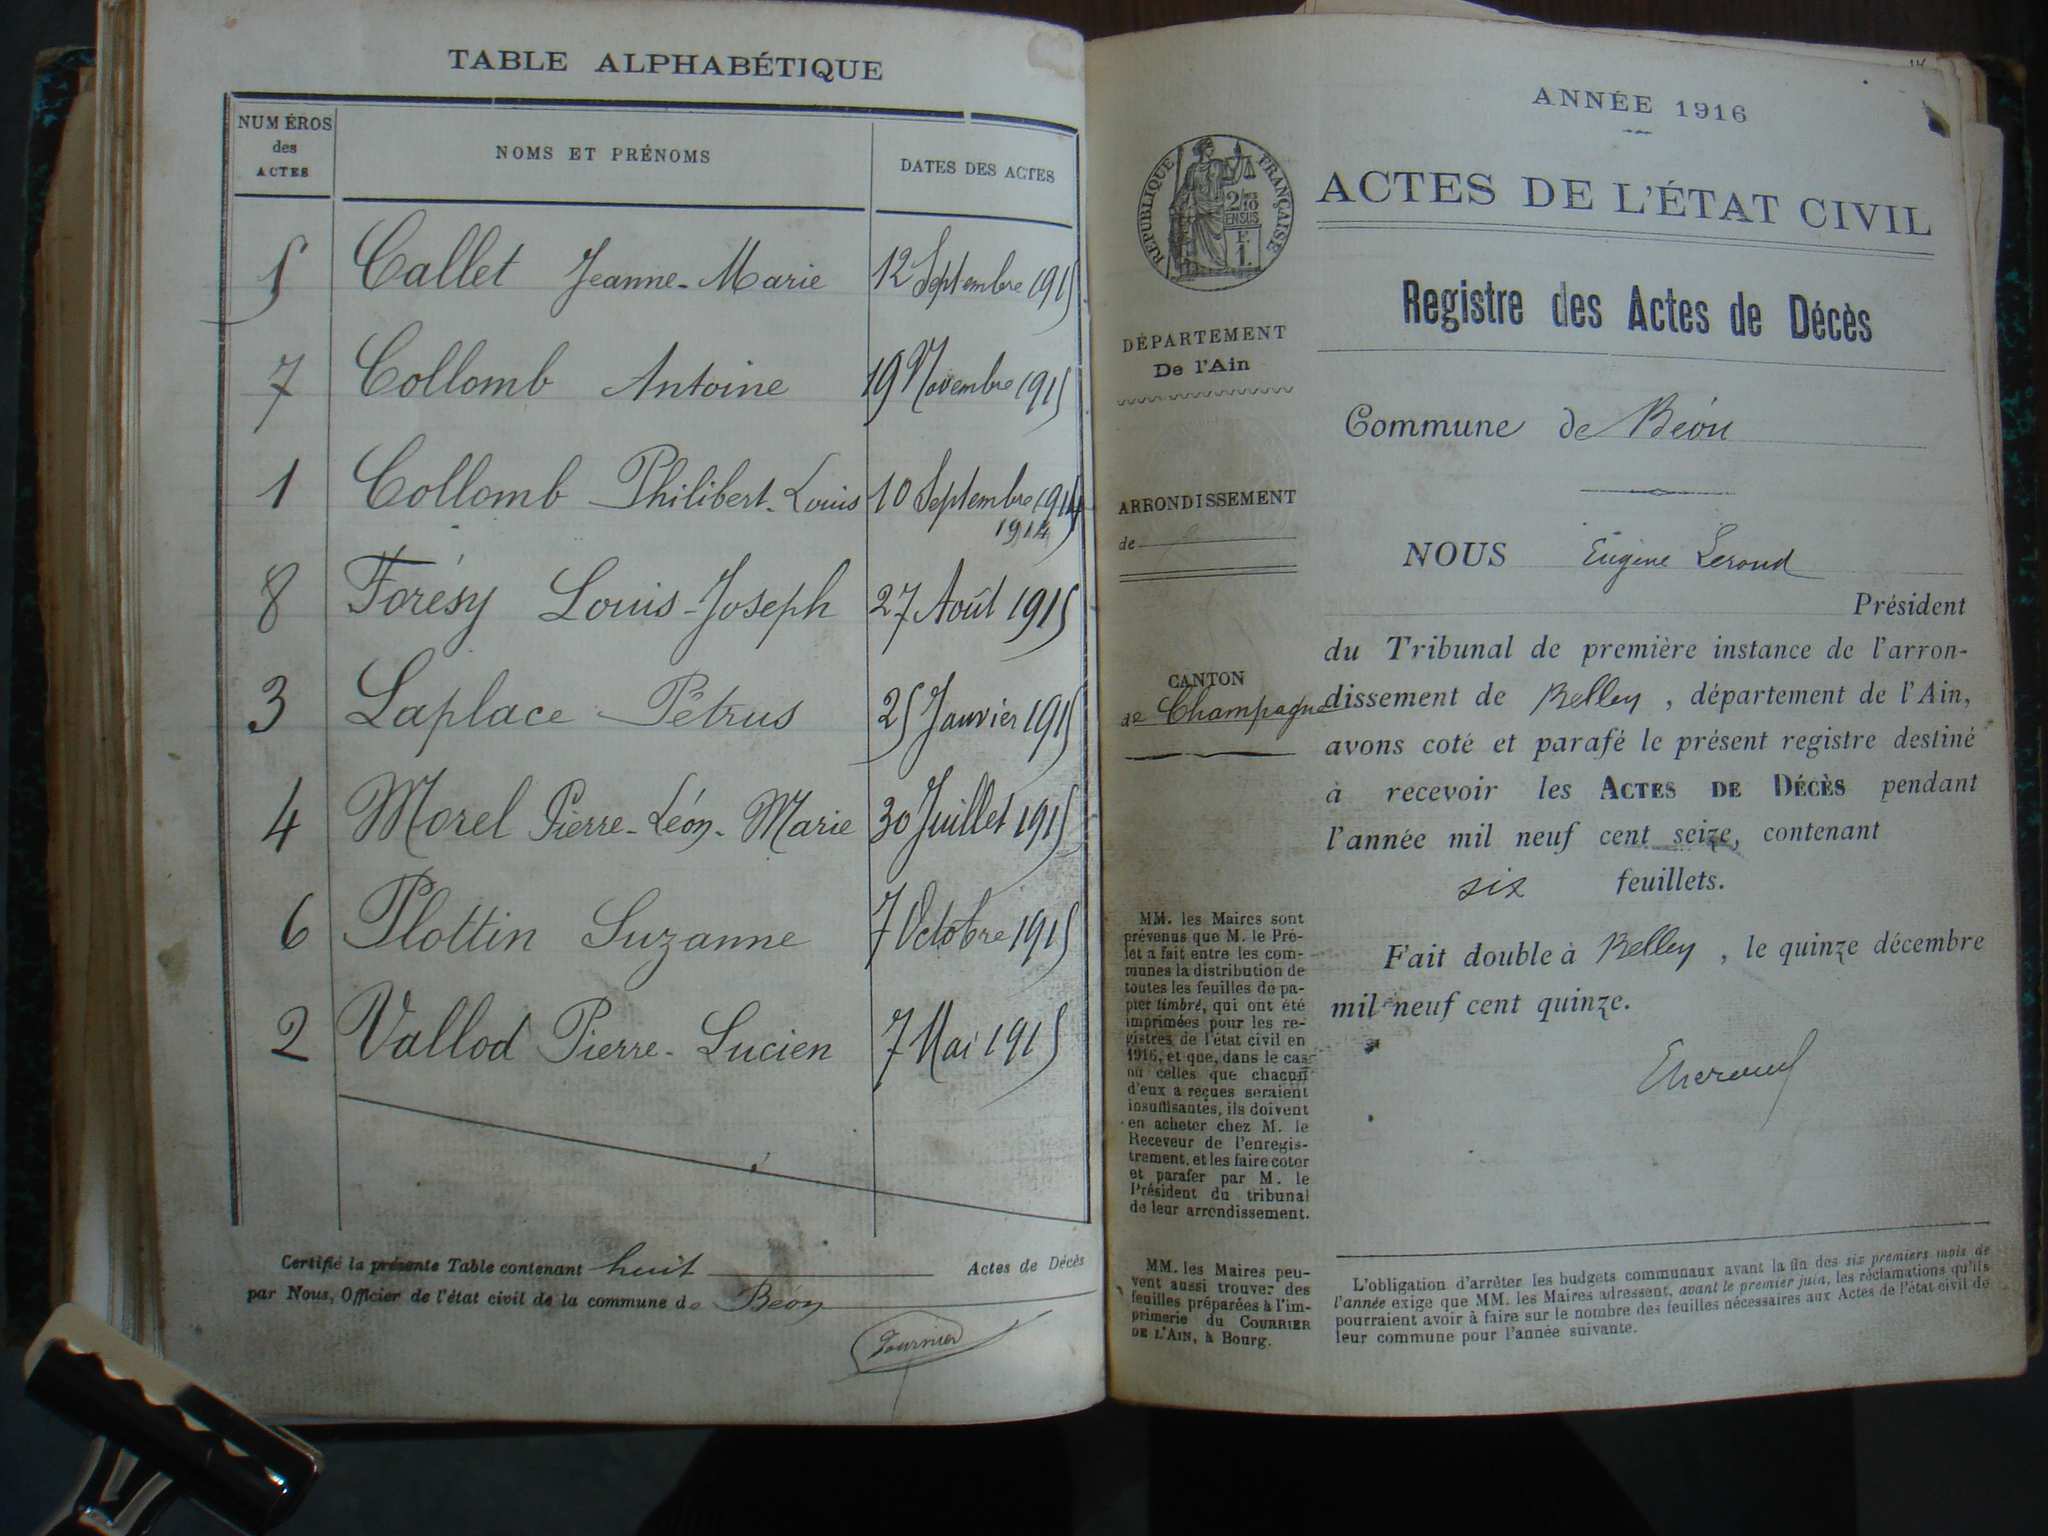 TABLE ALPHABÉTIQUE
NUMÉROS des ACTES NOMS ET PRÉNOMS DATES DES ACTES
5 Callet Jeanne-Marie 12 Septembre 1915
7 Collomb Antoine 19 Novembre 1915
1 Collomb Philibert-Louis 10 Septembre 1914
1914
8 Forésy Louis-Joseph 27 Août 1915
3 Laplace Pétrus 25 Janvier 1915
4 Morel Pierre-Léon-Marie 30 Juillet 1915
6 Plottin Suzanne 7 Octobre 1915
2 Vallod Pierre-Lucien 7 Mai 1915
Certifié la présente Table contenant huit Actes de Décès
par Nous, Officier de l'état civil de la commune de Béon
Fournier
ANNÉE 1916
RÉPUBLIQUE FRANÇAISE
2/10
EN SUS
F.
1.
ACTES DE L'ÉTAT CIVIL
Registre des Actes de Décès
DÉPARTEMENT
De l'Ain
ARRONDISSEMENT
de
CANTON
de Champagne
Commune de Béon
NOUS Eugène Leroud
Président
du Tribunal de première instance de l'arron-
dissement de Belley, département de l'Ain,
avons coté et parafé le présent registre destiné
à recevoir les ACTES DE DÉCÈS pendant
l'année mil neuf cent seize, contenant
six feuillets.
Fait double à Belley, le quinze décembre
mil neuf cent quinze.
MM. les Maires sont
prévenus que M. le Pré-
fet a fait entre les com-
munes la distribution de
toutes les feuilles de pa-
pier timbré, qui ont été
imprimées pour les re-
gistres de l'état civil en
1916, et que, dans le cas
où celles que chacun
d'eux a reçues seraient
insuffisantes, ils doivent
en acheter chez M. le
Receveur de l'enregis-
trement, et les faire coter
et parafer par M. le
Président du tribunal
de leur arrondissement.
MM. les Maires peu-
vent aussi trouver des
feuilles préparées à l'im-
primerie du COURRIER
DE L'AIN, à Bourg.
L'obligation d'arrêter les budgets communaux avant la fin des six premiers mois de
l'année exige que MM. les Maires adressent, avant le premier juin, les réclamations qu'ils
pourraient avoir à faire sur le nombre des feuilles nécessaires aux Actes de l'état civil de
leur commune pour l'année suivante.